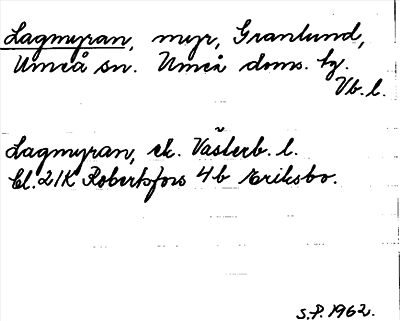 Lagmyran, myr, Granlund,
Umeå sn. Umeå doms. tg.
Vb. l.
Lagmyran, ek. Västerb. l.
Bl. 21K Robertsfors 4b Eriksbo.
S.P. 1962.